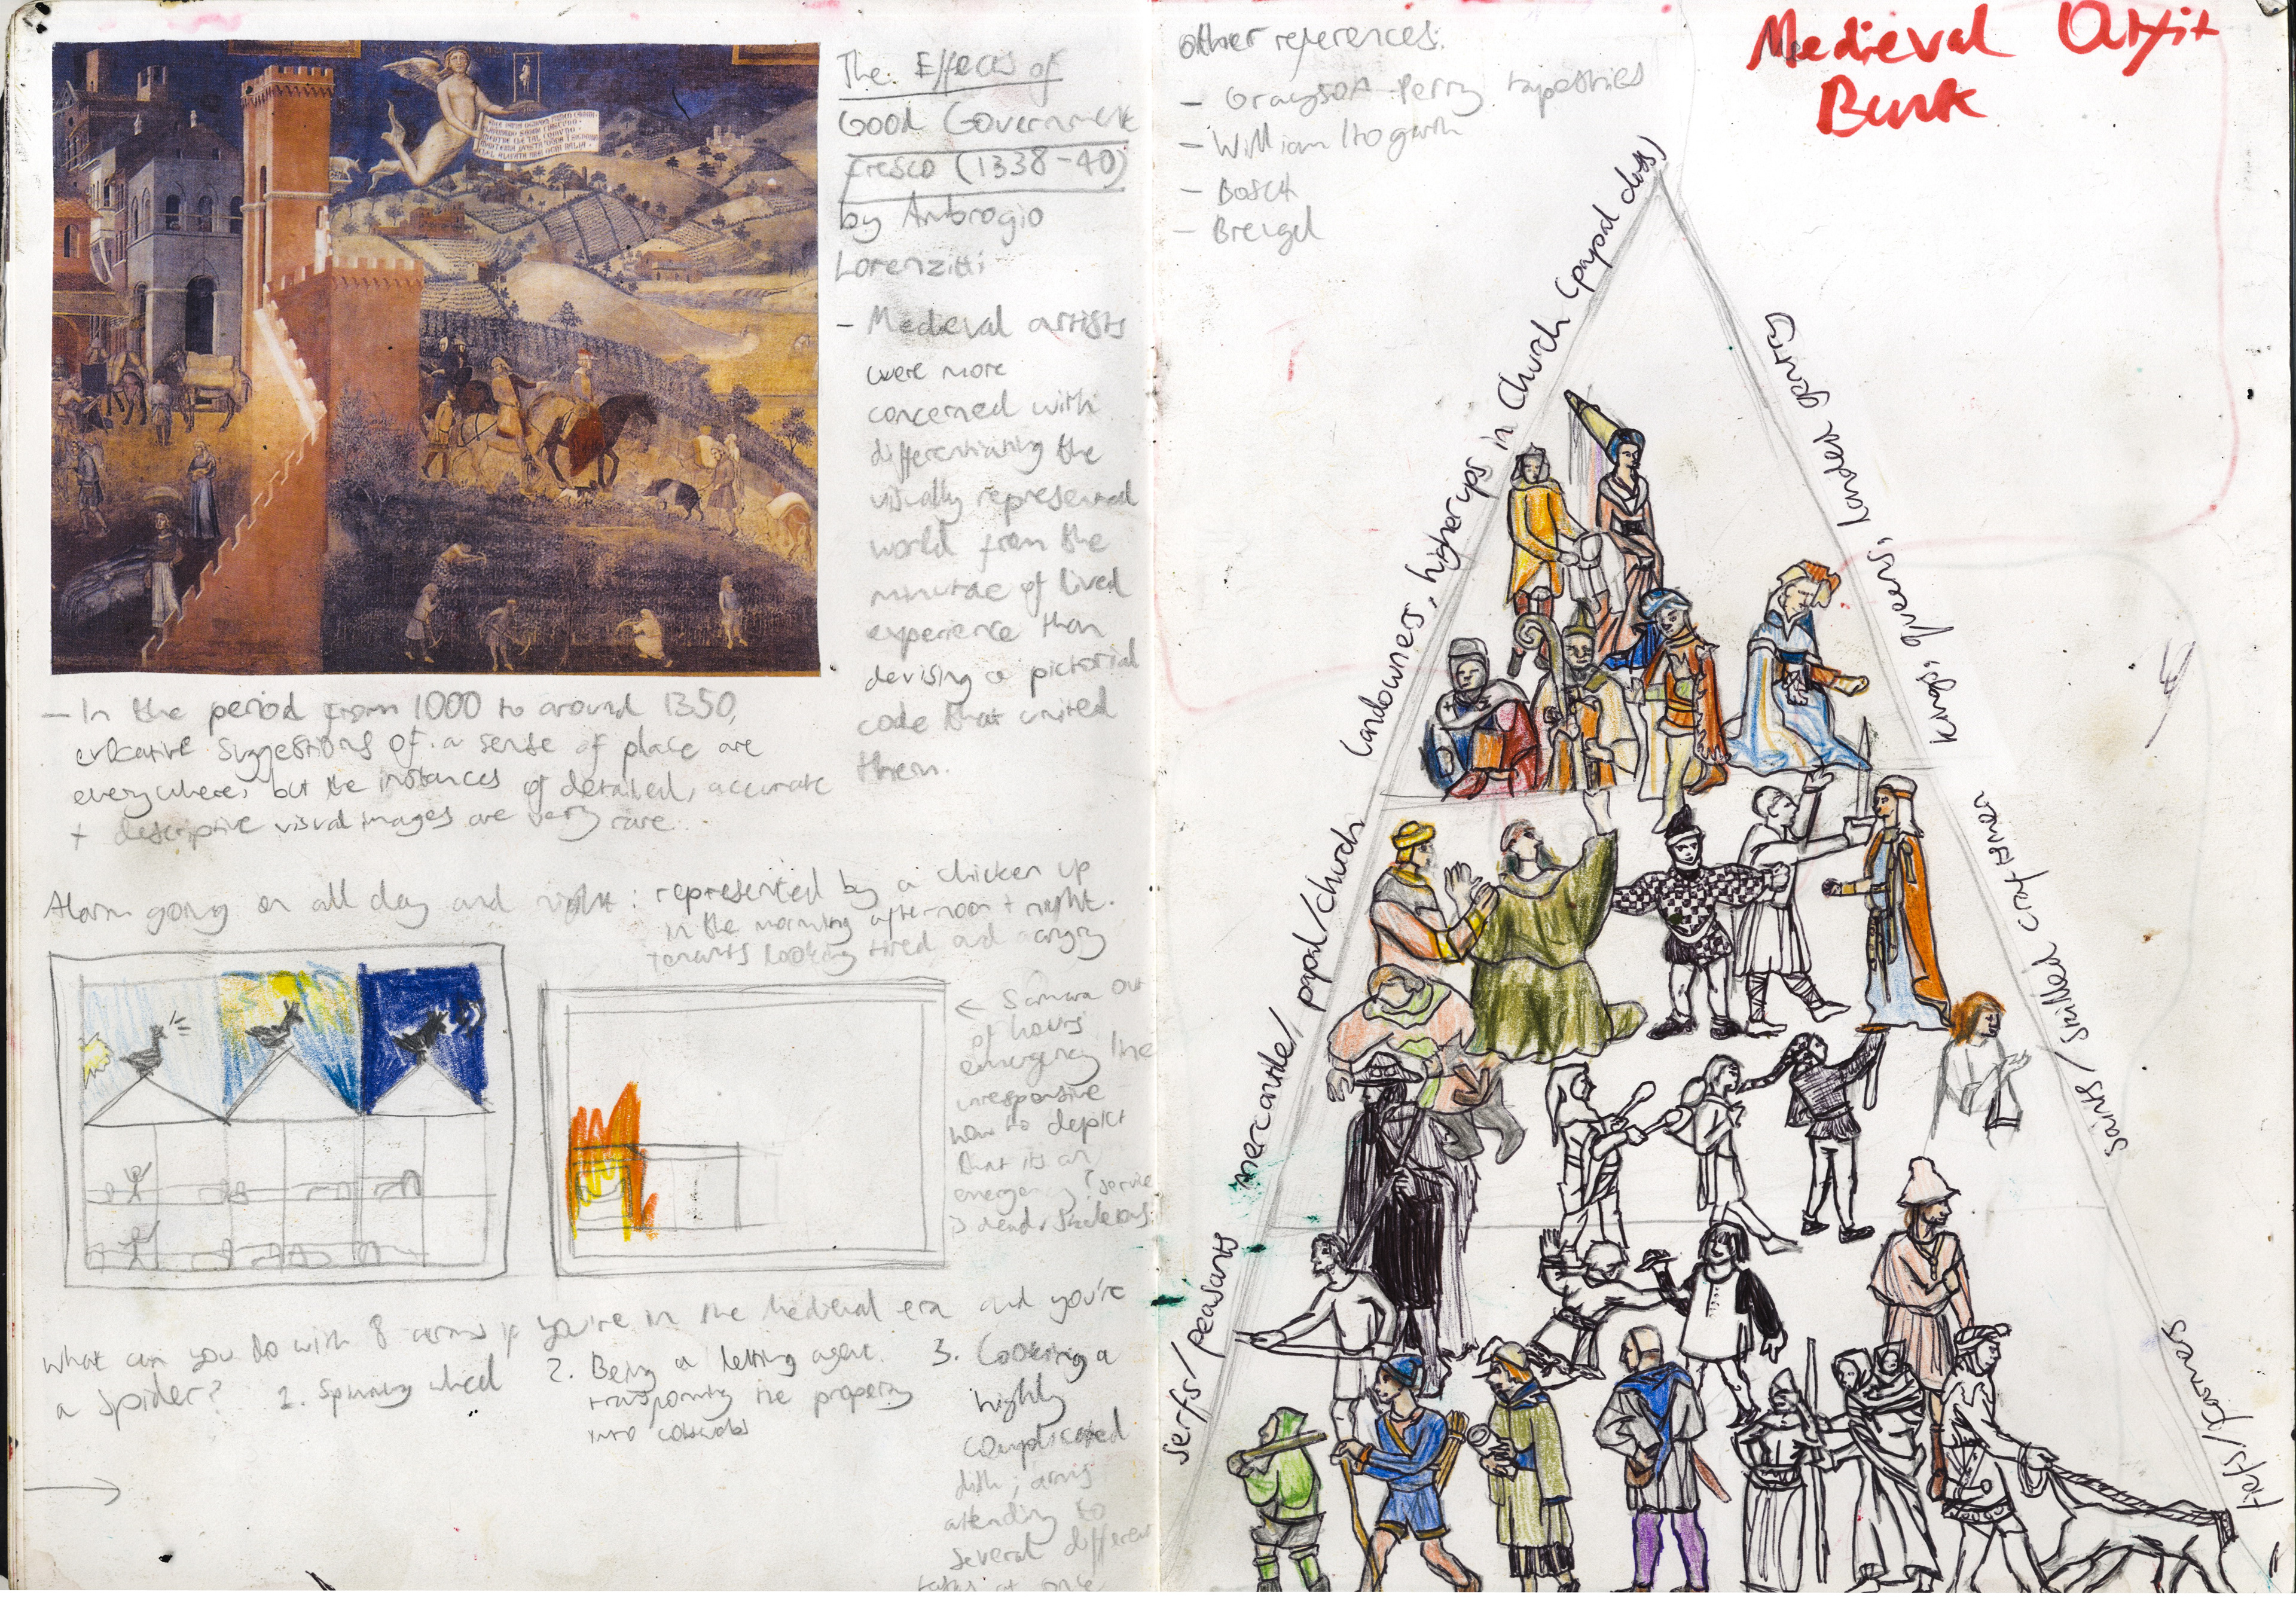 The Effects of
Good Government
fresco (1338-40)
by Ambrogio
Lorenzitti
- Medieval artists
were more
concerned with
differentiating the
visually represented
world from the
minutae of lived
experience than
devising a pictorial
code that united
them.
- In the period from 1000 to around 1350,
evocative suggestions of a sense of place are
everywhere, but the instances of detailed, accurate
+ descriptive visual images are very rare.
Alarm going on all day and night: represented by a chicken up
in the morning afternoon + night.
tenants looking tired and angry
← Samara out
of hours
emergency line
unresponsive
how to depict
that its an
emergency? service
is dead, skeletons.
What can you do with 8 arms if you're in the medieval era and you're
a spider?
1. Spinning wheel
2. Being a letting agent.
transforming the property
into cobwebs
3. Cooking a
highly
complicated
dish; arms
attending to
several different
tasks at once
other references:
- Grayson Perry tapestries
- William Hogarth
- Bosch
- Breugel
Medieval Outfit
Bank
Landowners, higher ups in Church (papal class)
Kings, queens, landed gentry
mercantile/ papal/church
Saints/ skilled craftsmen
Serfs/ peasants
Fiefs/